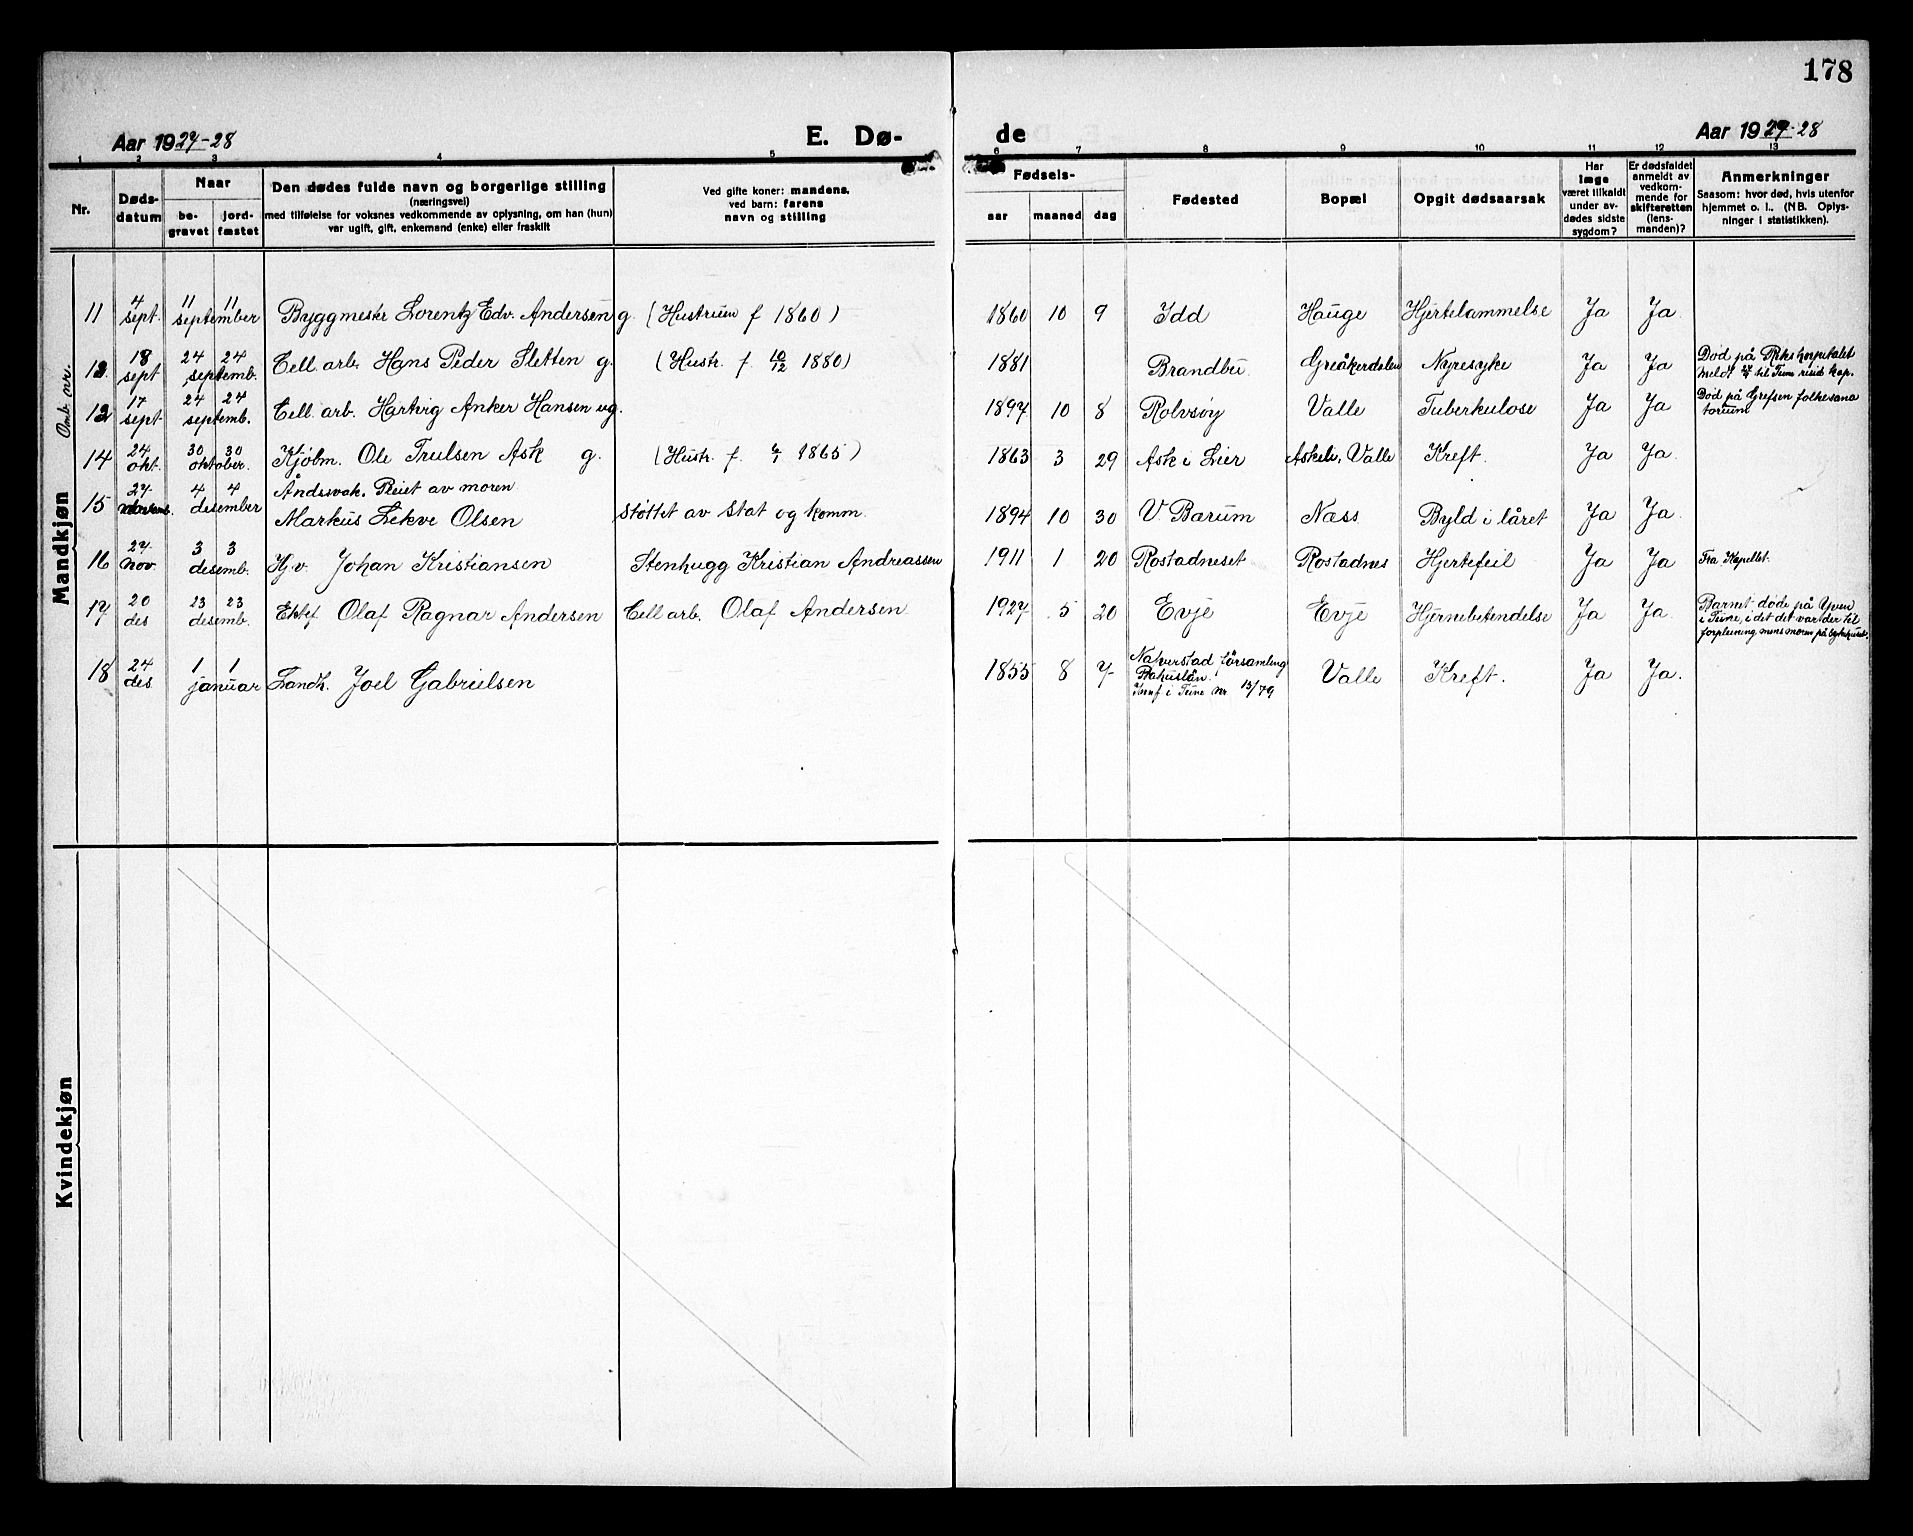 178
Aar 1927-28
E. Dø-
de
Aar 1927-28
1 2 3 4 5 6 7 8 9 10 11 12 13
Nr.
Døds-
datum
Naar
be-
gravet
jord-
fæstet
Den dødes fulde navn og borgerlige stilling
(næringsvei)
med tilføielse for voksnes vedkommende av oplysning, om han (hun)
var ugift, gift, enkemand (enke) eller fraskilt
Ved gifte koner: mandens.
ved barn: farens
navn og stilling
Fødsels-
aar maaned dag
Fødested
Bopæl
Opgit dødsaarsak
Har
læge
været tilkaldt
under av-
dødes sidste
sygdom?
Er dødsfaldet
anmeldt av
vedkom-
mende for
skifteretten
(lens-
manden)?
Anmerkninger
Saasom: hvor død, hvis utenfor
hjemmet o. l.. (NB. Oplys-
ninger i statistikken).
Mandkjøn
Omb. nr.
11 4 sept. 11 11 september Byggmester Lorentz Edv. Andersen g. (Hustruen f 1860) 1860 10 9 Idd Hauge Hjertelammelse Ja Ja
13 18 sept 24 24 septemb. Cell. arb. Hans Peder Sletten g. (Hustr. f. 10/12 1880) 1881 Brandbu Greåkerdalen Nyresyke Ja Ja Død på Rikshospitalet
meldt til Tune resid. kap.
12 17 sept 24 24 septemb. Cell. arb. Hartvig Anker Hansen ug. 1897 10 8 Rolvsøy Valle Tuberkulose Ja Ja Død på Grefsen folkesana
torium
14 24 okt. 30 30 oktober. Kjøbm. Ole Trulsen Ask g. (Hustr. f. 1865) 1863 3 29 Ask i Lier Valle Kreft. Ja Ja.
Åndssvak. Pleiet av moren
15 27 4 4 desember Markus Lekve Olsen støttet av stat og komm. 1894 10 30 V. Bærum Næss Byld i låret Ja Ja.
16 27 nov. 3 3 desemb. Hj.v. Johan Kristiansen Stenhugg Kristian Andreassen 1911 1 20 Rostadneset Rostadnes Hjertefeil Ja Ja Fra Kapellet.
17 20 des 23 23 desemb. Ektef Olaf Ragnar Andersen Cell arb. Olaf Andersen 1927 5 20 Evje Evje Hjernebetendelse Ja Ja. Barnet døde på Yven
i Tune, i det det var der til
forpleining mens moren på sykehuset.
18 24 des. 1 1 januar Landh. Joel Gabrielsen 1855 8 7 Naverstad församling
Bohuslän.
Innf i Tune nr. 13/79 Valle Kreft. Ja Ja.
Kvindekjøn